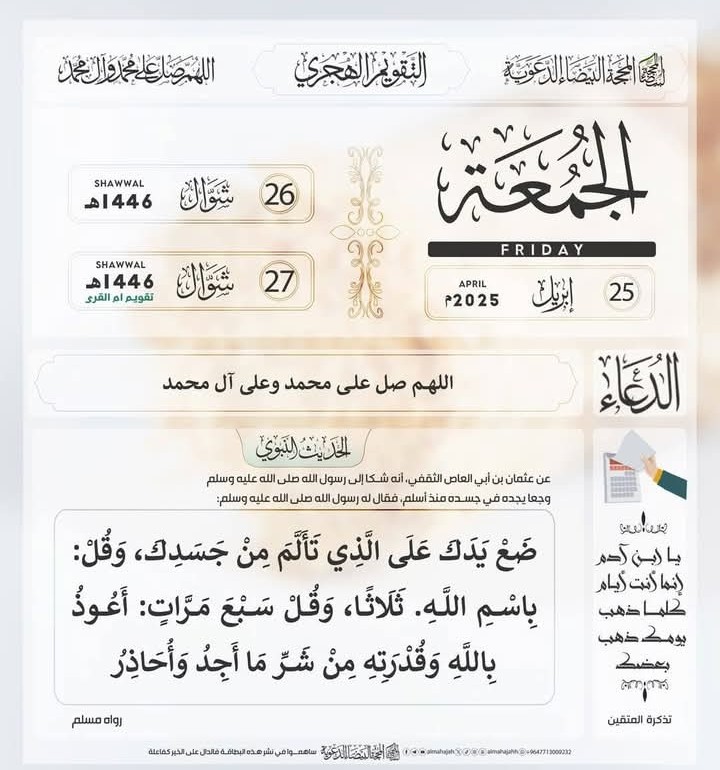 المحجة البيضاء الدعوية
التقويم الهجري
اللهم صل على محمد وآل محمد
الجمعة
FRIDAY
25
إبريل
APRIL
2025م
26
شوال
SHAWWAL
1446هـ
27
شوال
SHAWWAL
1446هـ
تقويم ام القرى
الدعاء
اللهم صل على محمد وعلى آل محمد
الحديث النبوي
عن عثمان بن أبي العاص الثقفي، أنه شكا إلى رسول الله صلى الله عليه وسلم
وجعا يجده في جسده منذ أسلم، فقال له رسول الله صلى الله عليه وسلم:
ضَعْ يَدَكَ عَلَى الَّذِي تَأَلَّمَ مِنْ جَسَدِكَ، وَقُلْ:
بِاسْمِ اللَّهِ. ثَلَاثًا، وَقُلْ سَبْعَ مَرَّاتٍ: أَعُوذُ
بِاللَّهِ وَقُدْرَتِهِ مِنْ شَرِّ مَا أَجِدُ وَأُحَاذِرُ
رواه مسلم
يا ابن آدم
إنما أنت أيام
كلما ذهب
يومك ذهب
بعضك
تذكرة المتقين
ساهمــوا في نشر هذه البطاقة فالدال على الخير كفاعلة
المحجة البيضاء الدعوية
almahajah
almahajahh
+9647713009232